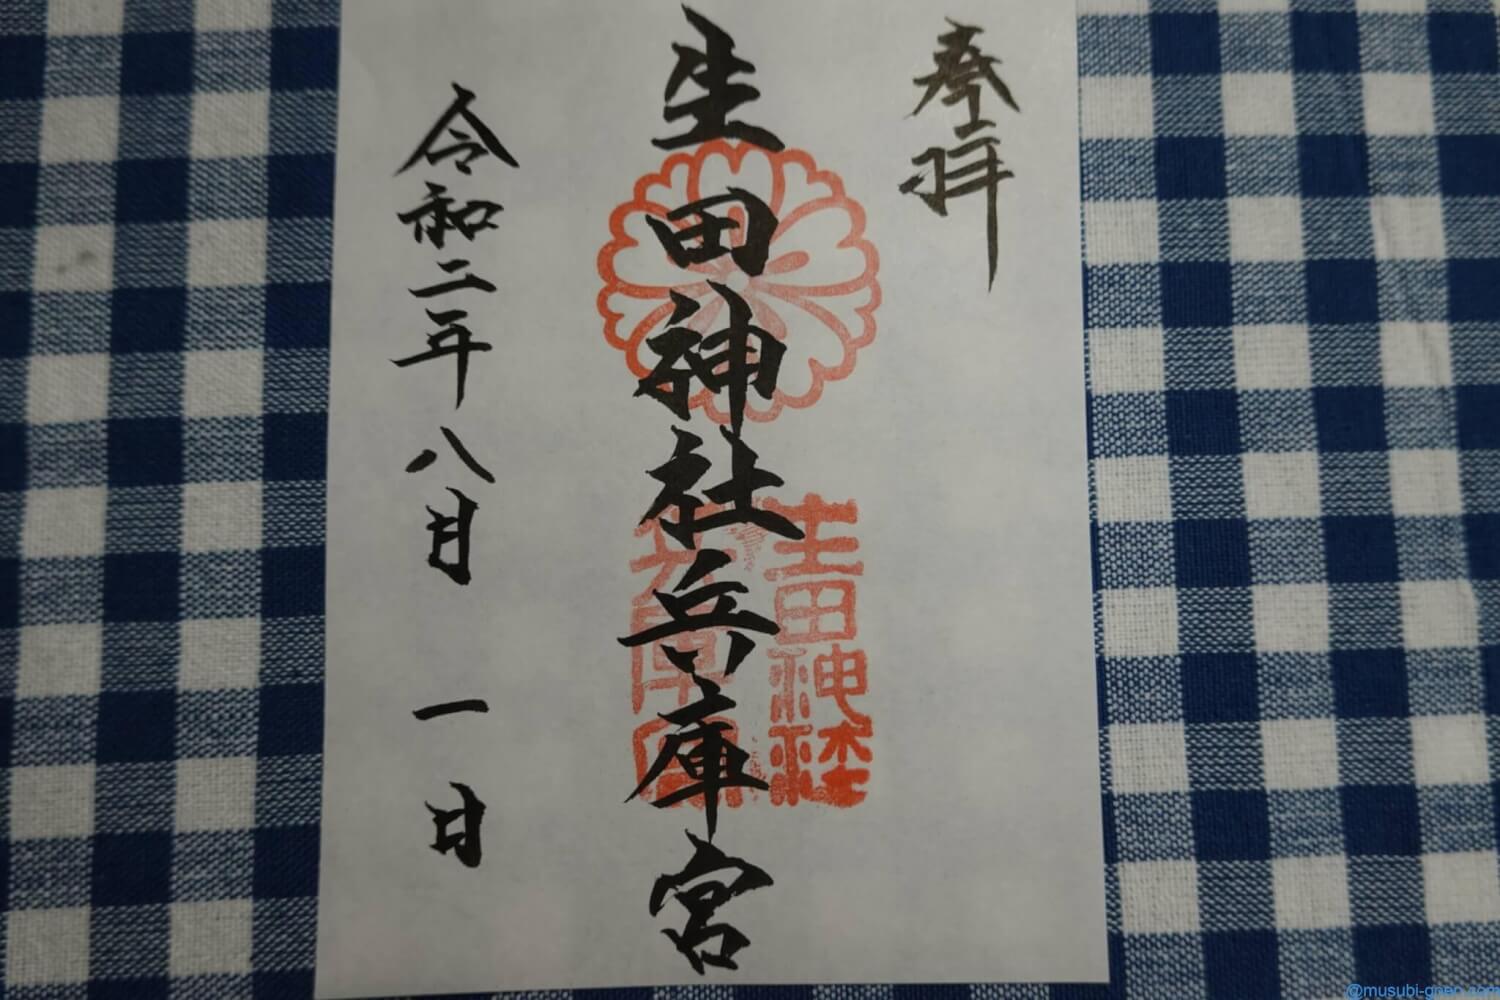 奉拝
生田神社兵庫宮
生田神社
兵庫宮
令和二年八月一日